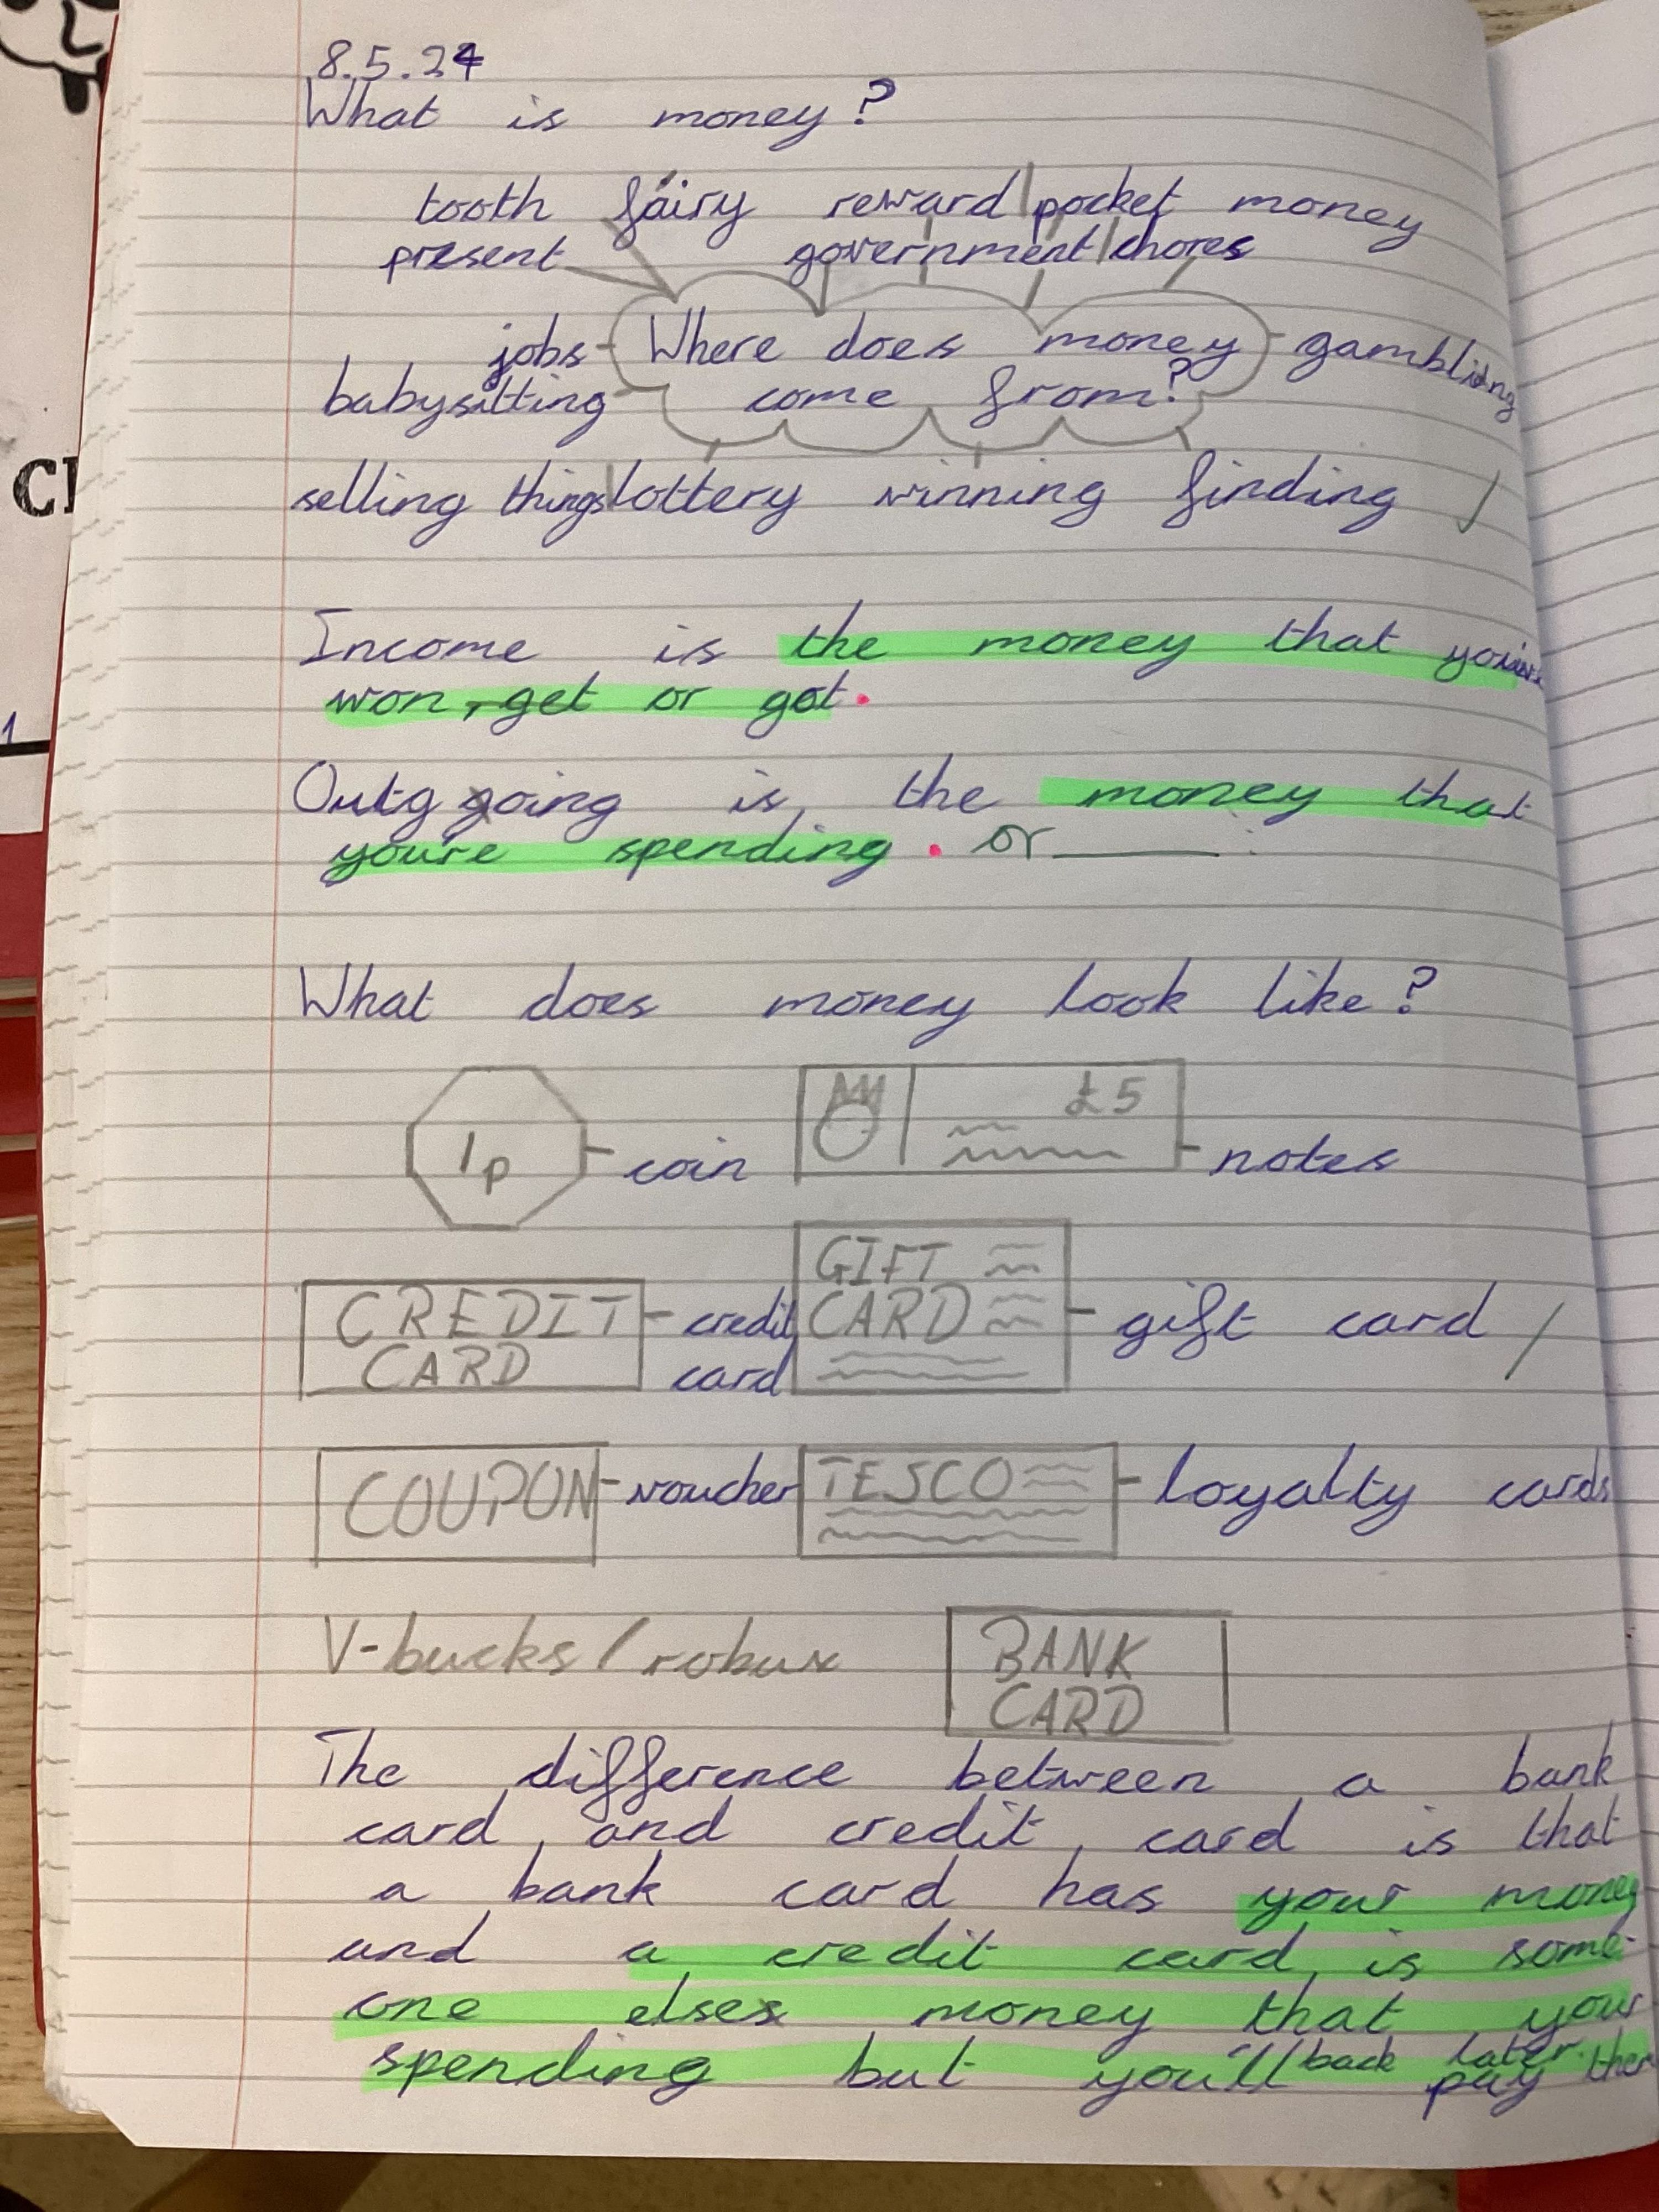 8.5.24
What is money?
tooth fairy reward pocket money
present government chores
jobs Where does money gambling
babysitting come from?
selling things lottery winning finding
Income is the money that
won, get or got.
Outg going is the money that
you're spending. or
What does money look like?
1p coin £5 notes
CREDIT CARD credit card GIFT CARD gift card
COUPON voucher TESCO loyalty cards
V-bucks / robux BANK CARD
The difference between a bank
card and credit card is that
a bank card has your money
and a credit card is some-
one elses money that your
spending but you'll pay them back later.
CL
1